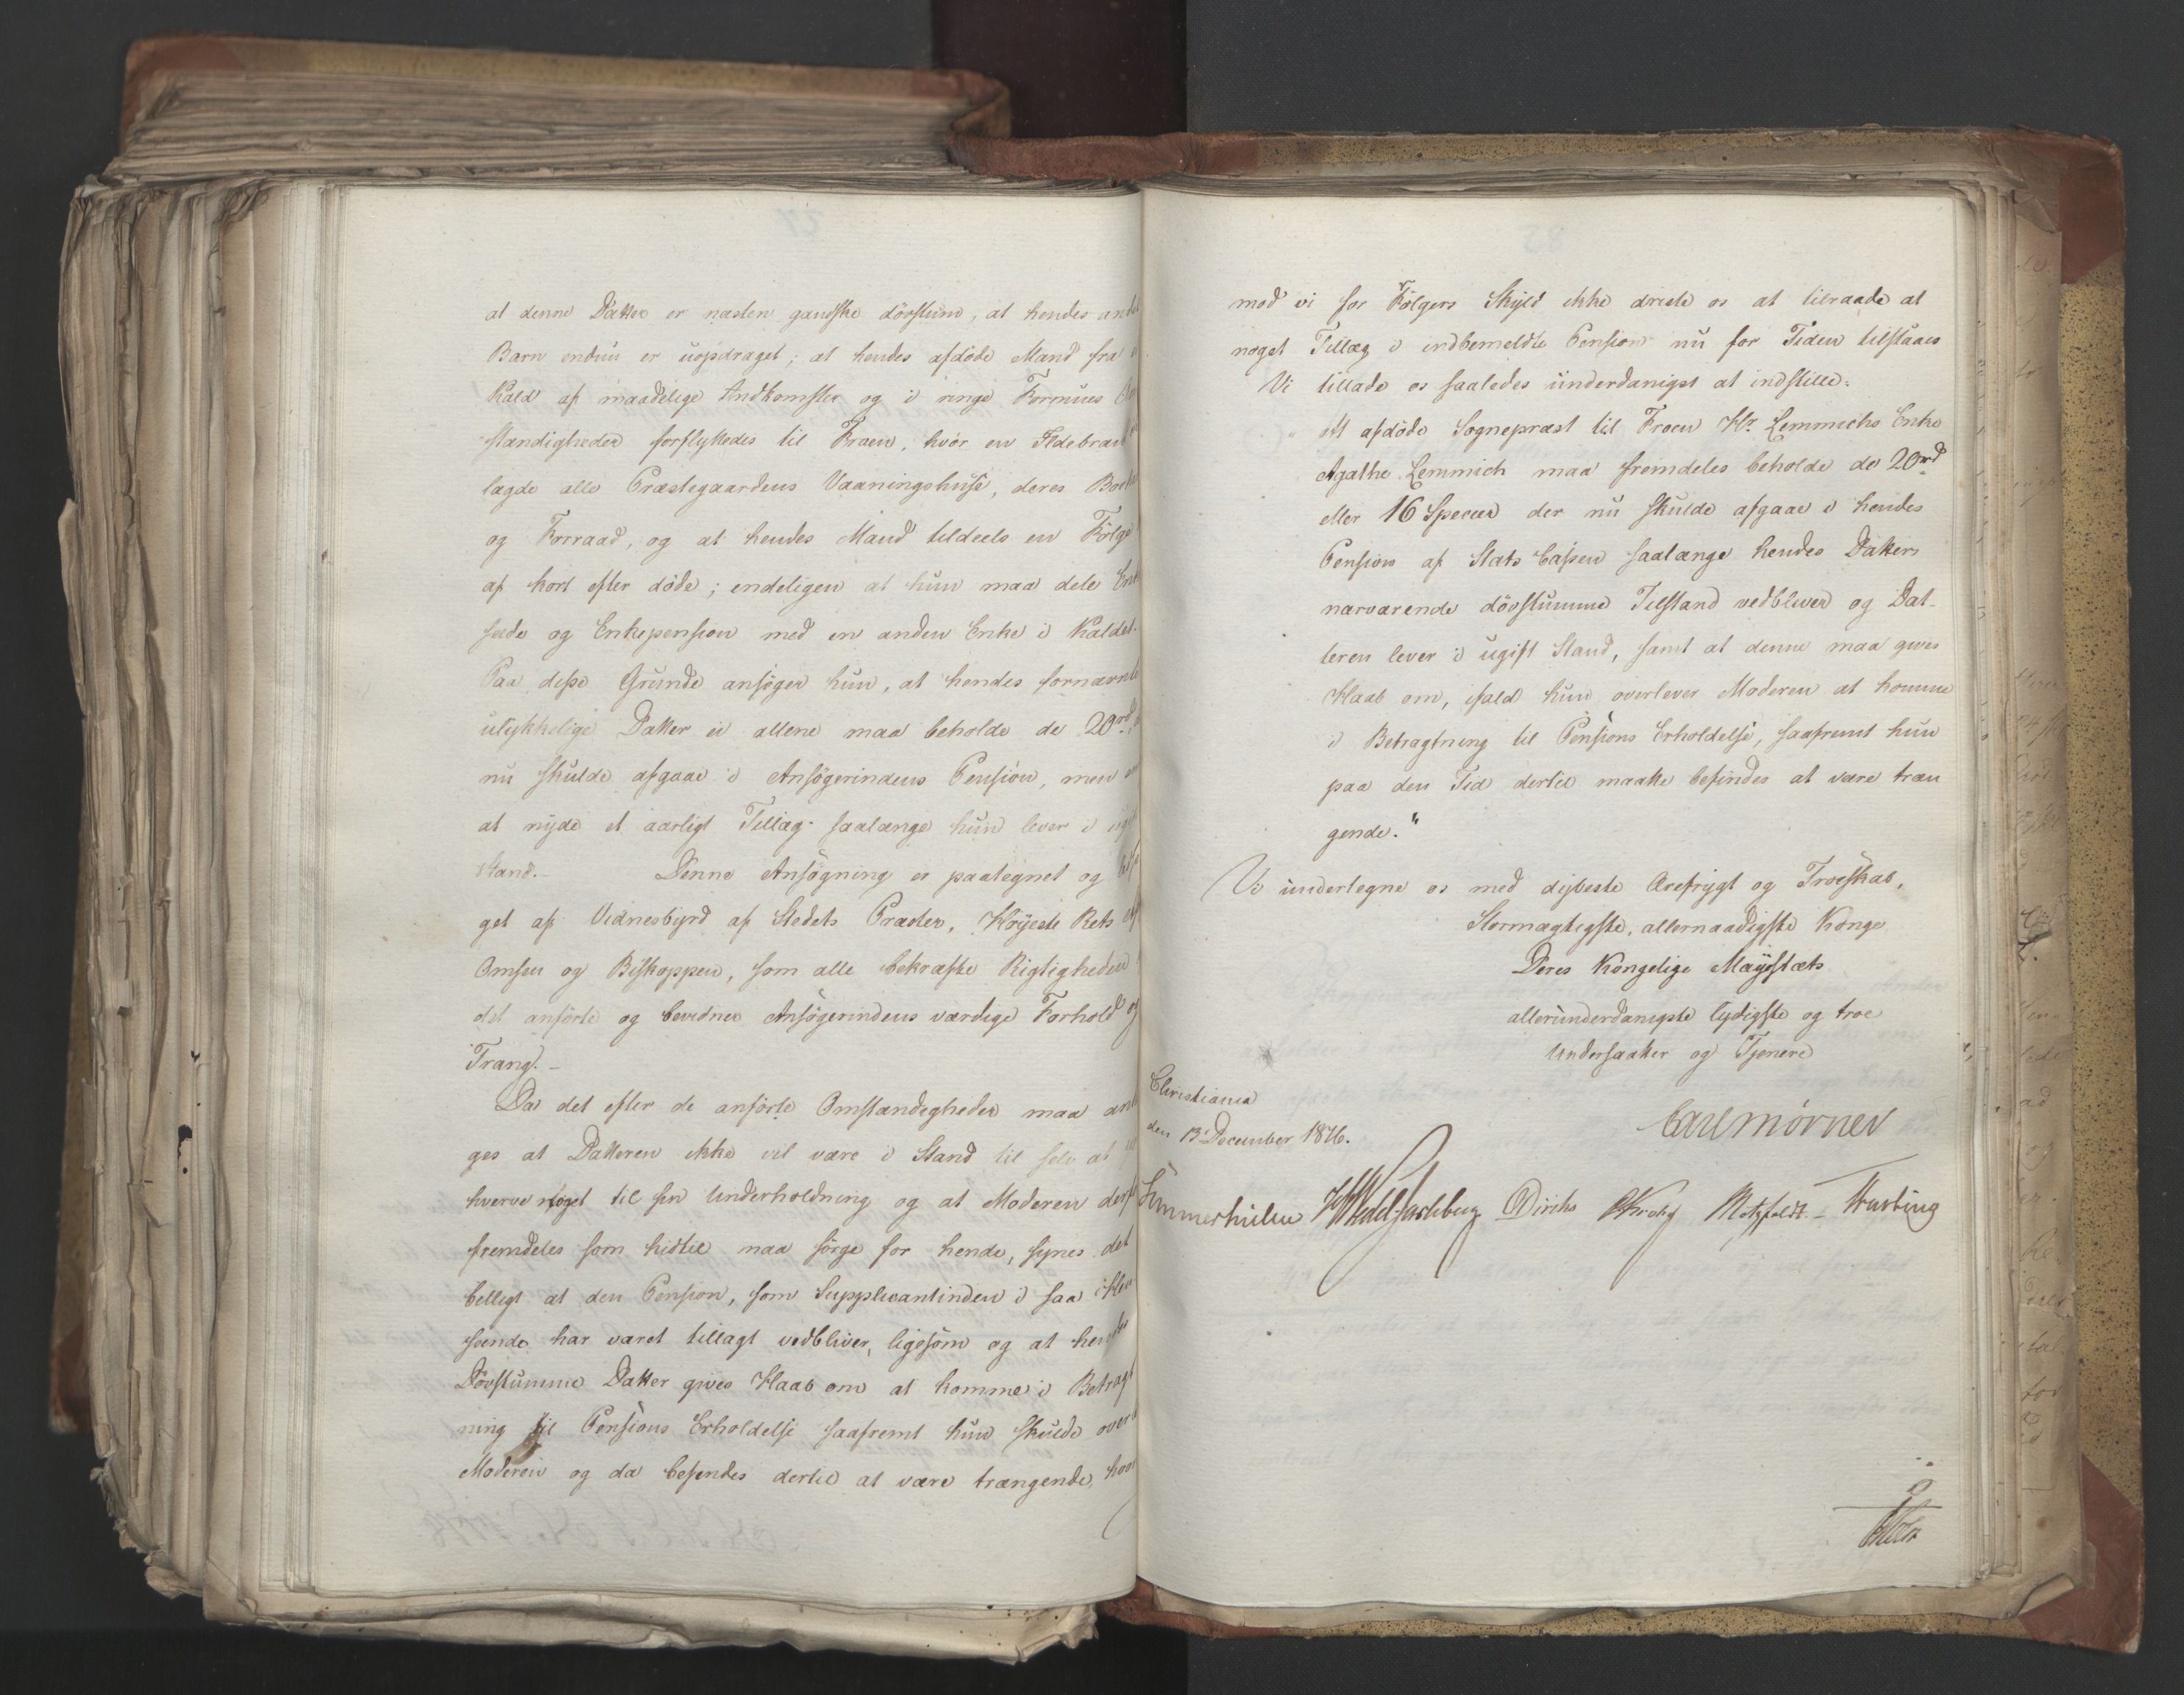 at denne Datter er næsten gandske døvstum, at hendes andet
Barn endnu er uopdraget; at hendes afdøde Mand fra
Kald af maadelige Indkomster og i ringe Formues
stændigheder forflyttedes til Froen, hvor en Ildebrand
lagde alle Præstegaardens Vaaningshuse, deres
og Forraad, og at hendes Mand tildeels en Følge
af kort efter døde; endeligen at hun maa dele Enk
sæde og Enkepension med en anden Enke i Kaldet.
Paa disse Grunde ansøger hun, at hendes fornævnte
ulykkelige Datter ei allene maa beholde de 20rd
nu skulde afgaae i Ansøgerindens Pension, men
at nyde et aarligt Tillæg saalænge hun lever i ugift
Stand. – Denne Ansøgning er paategnet og
get af Vidnesbyrd af Stedets Præster, Høyeste Rets
Omsen og Biskoppen, som alle bekræfte Rigtigheden
det anførte og bevidner Ansøgerindens værdige Forhold og
Trang. –
Da det efter de anførte Omstændigheder maa an
ges at Datteren ikke vil være i Stand til selv at
hverve noget til sin Underholdning og at Moderen
fremdeles som hidtil maa sørge for hende, synes det
billigt at den Pension, som Supplicantinden i saa Hen
seende har været tillagt vedbliver, ligesom og at hendes
Døvstumme Datter gives Haab om at komme i Betragt
ning til Pensions Erholdelse saafremt hun skulde over
Moderen og da befindes dertil at være trængende,
mod vi for Følgers Skyld ikke driste os at tilraade at
noget Tillæg i indbemeldte Pension nu for Tiden tilstaaes
Vi tillade os saaledes underdanigst at indstille:
"At afdøde Sognepræst til Froen Hr. Lemmichs Enke
Agathe Lemmich maa fremdeles beholde de 20rd
eller 16 Species der nu skulde afgaae i hendes
Pension af Stats Cassen saalænge hendes Datters
nærværende døvstumme Tilstand vedbliver og Dat-
teren lever i ugift Stand, samt at denne maa gives
Haab om, ifald hun overlever Moderen at komme
i Betragtning til Pensions Erholdelse, saafremt hun
paa den Tid dertil maatte befindes at være træn
gende."
Vi undertegne os med dybeste Ærefrygt og Troeskab,
Stormægtigste, allernaadigste Konge
Deres Kongelige Mayestæts
allerunderdanigste lydigste og troe
Undersaatter og Tjenere
Christiania
den 13 December 1816.
Carl Mörner
Sommerhielm HWedel Jarlsberg Diriks CKrohg Motzfeldt – Hasting